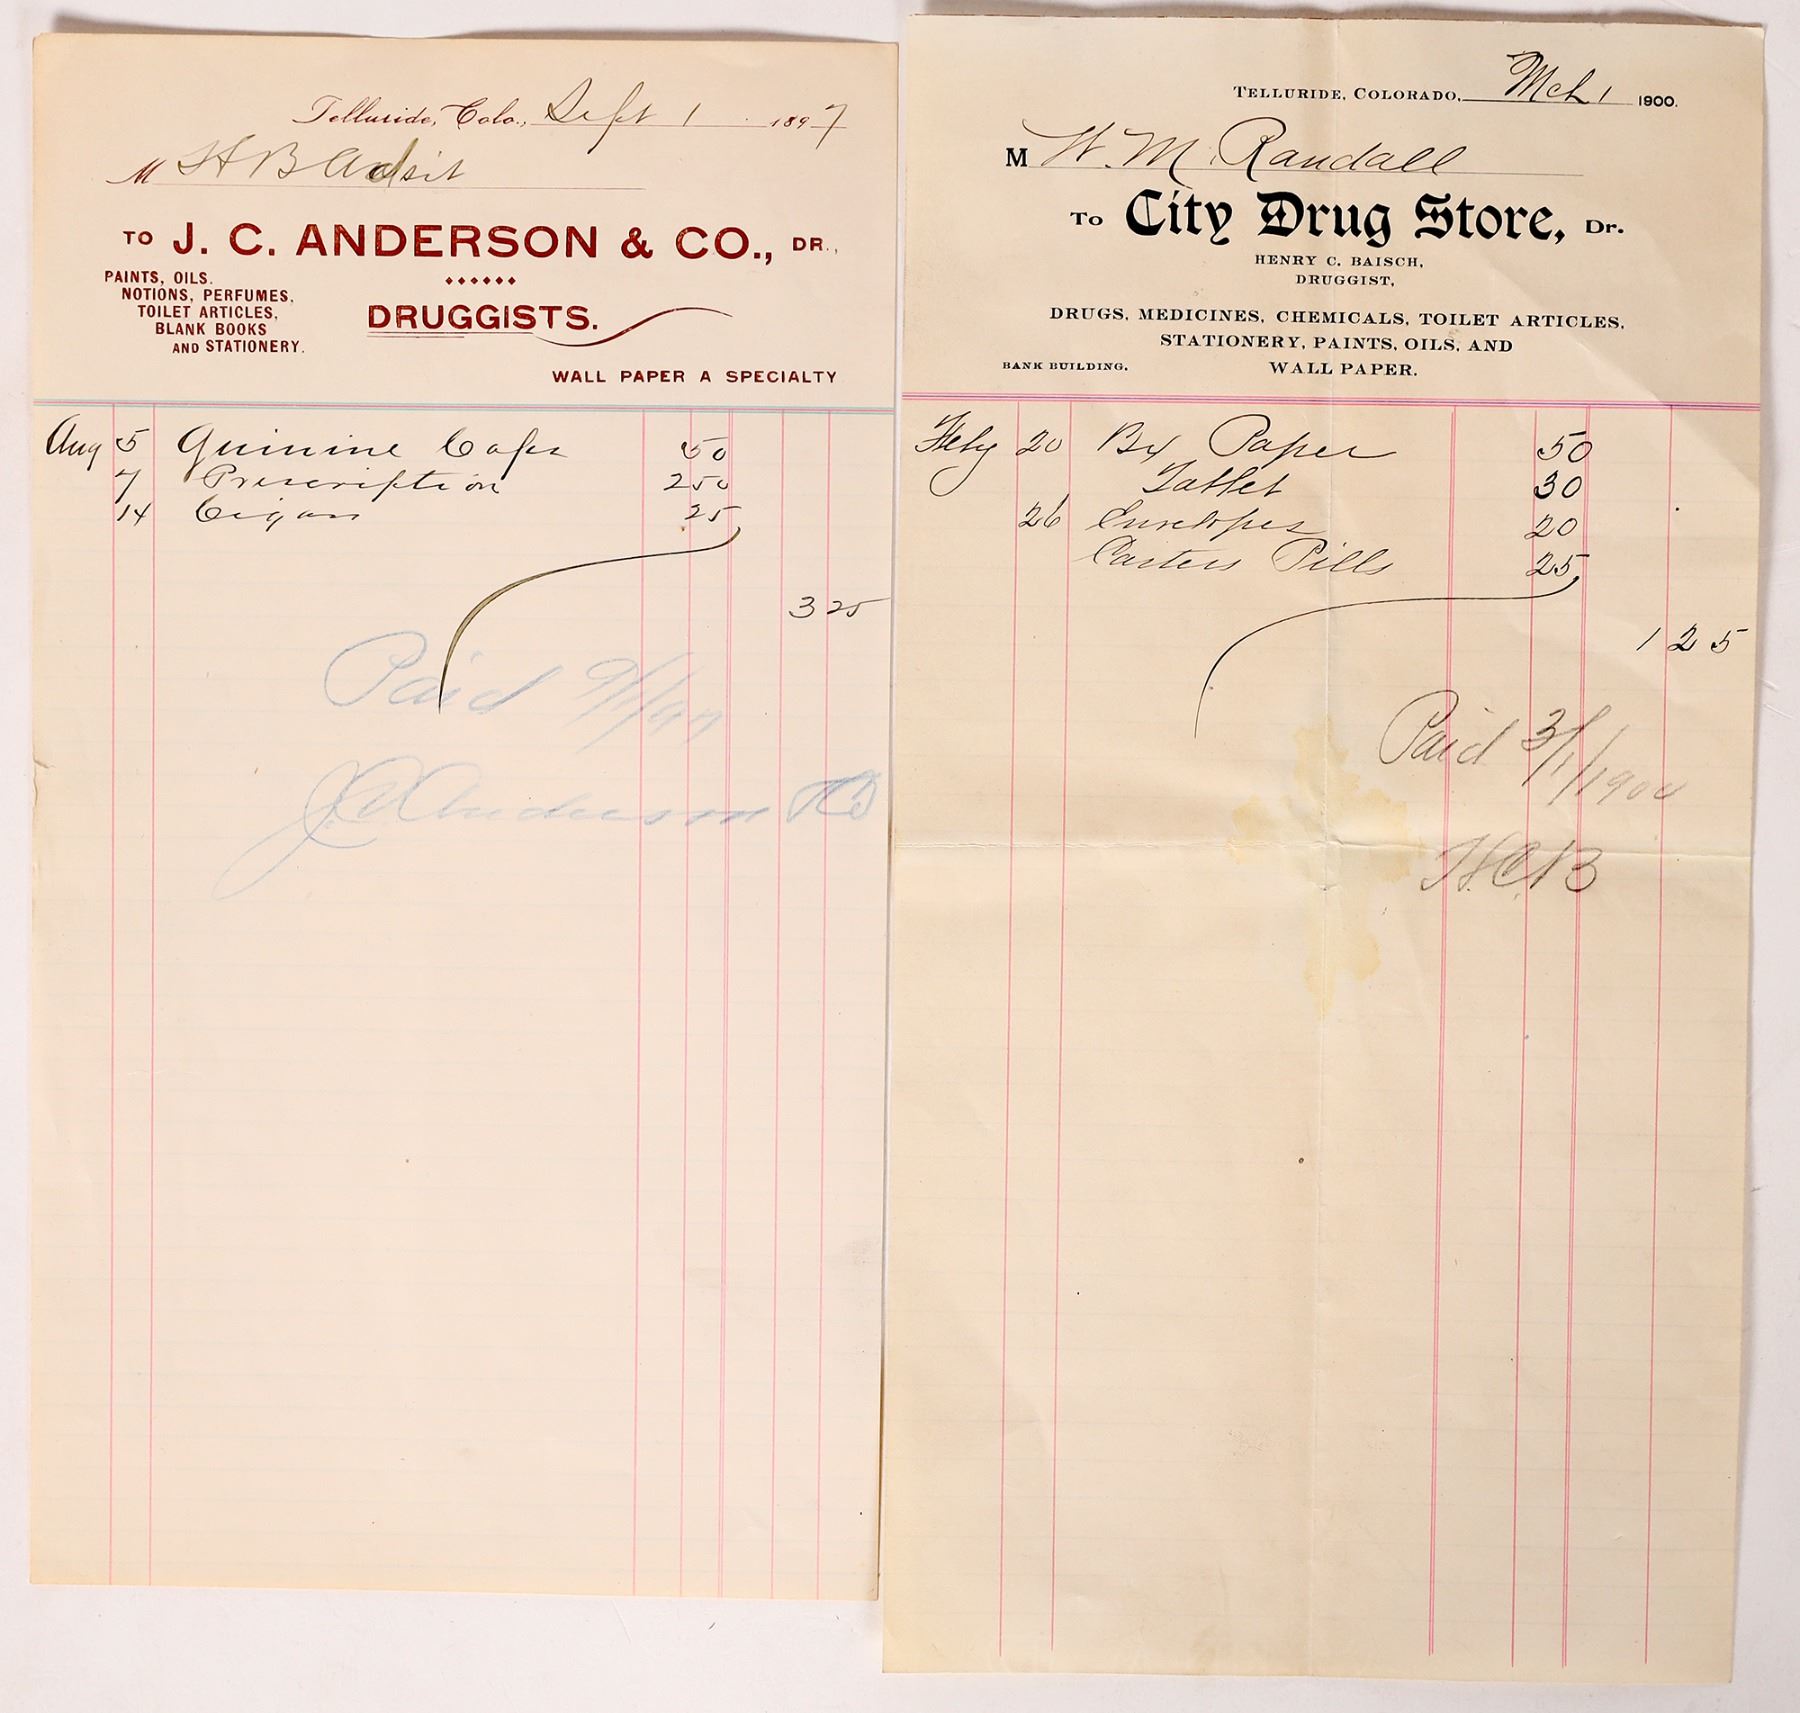 Telluride, Colo., Sept 1 1897
M H B Adsit
TO J. C. ANDERSON & CO., DR.,
PAINTS, OILS.
NOTIONS, PERFUMES,
TOILET ARTICLES,
BLANK BOOKS
AND STATIONERY.
DRUGGISTS.
WALL PAPER A SPECIALTY
Aug 5 Quinine Caps 50
7 Prescription 250
14 Cigars 25
3 25
Paid 9/1/97
J. C. Anderson & Co
TELLURIDE, COLORADO, Mch 1 1900.
M W. M. Randall
To City Drug Store, Dr.
HENRY C. BAISCH,
DRUGGIST,
DRUGS, MEDICINES, CHEMICALS, TOILET ARTICLES,
STATIONERY, PAINTS, OILS, AND
BANK BUILDING. WALL PAPER.
Feby 20 Bx Paper 50
Tablet 30
26 Envelopes 20
Carters Pills 25
1 25
Paid 3/1/1900
H.C.B